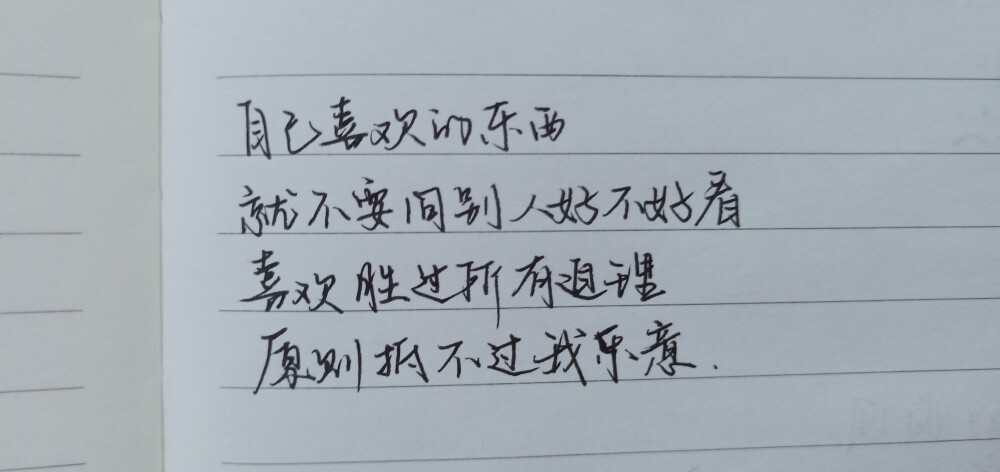 自己喜欢的东西
就不要问别人好不好看
喜欢胜过所有道理
原则抵不过我乐意.